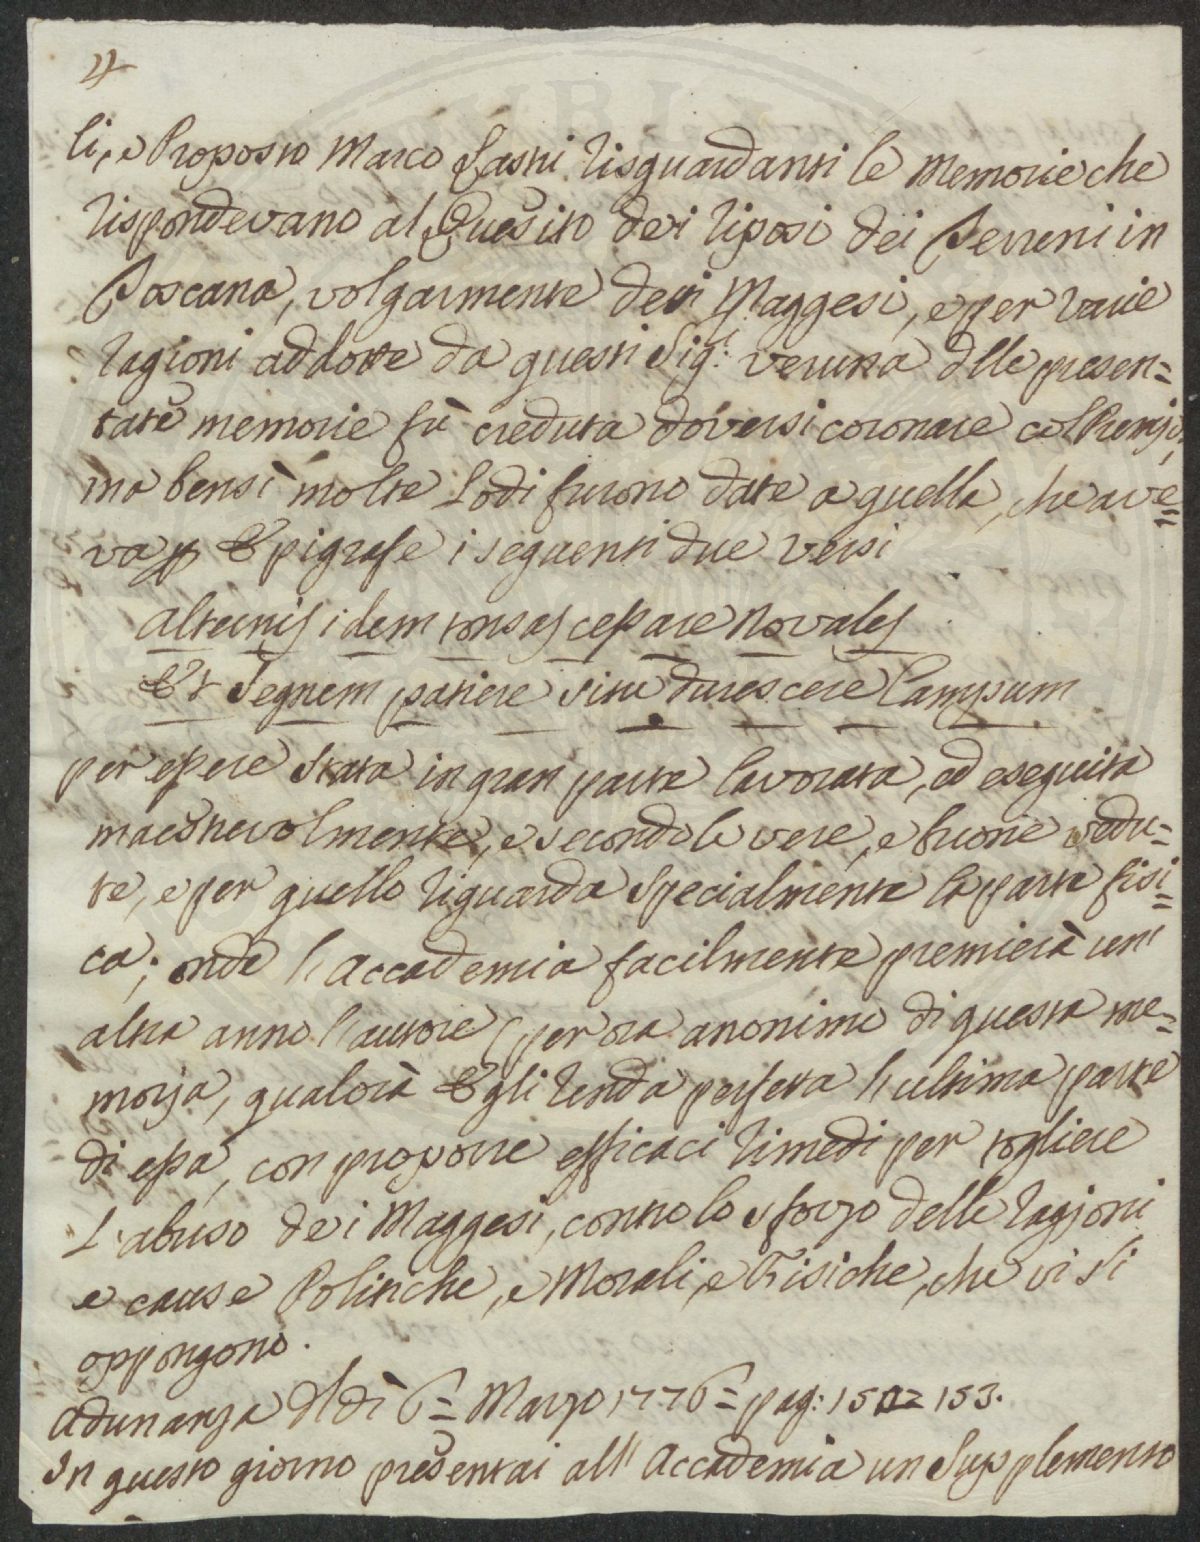 4
li, e Proposto Marco Lastri risguardanti le Memorie che
rispondevano al Quesito dei riposi dei Terreni in
Toscana, volgarmente detti Maggesi, e per varie
ragioni addotte da questi Sigri: veruna dlle presen=
tate memorie fù creduta doversi coronare col Premjo,
ma bensì molte Lodi furono date a quella, che ave=
va p Epigrafe i seguenti due Versi
Alternis idem tonsas cessare Novales
Et Segnem patiere situ durescere Campum
per essere stata in gran parte lavorata, ed eseguita
maestrevolmente, e secondo le vere, e buone vedu=
te, e per quello riguarda specialmente la parte fisi=
ca; onde l'Accademia facilmente premierà un'
altra anno l'autore (per ora anonimo di questa me=
morja, qualora Egli renda perfetta l'ultima parte
di essa, con proporre efficaci rimedi per togliere
L'abuso dei Maggesi, contro lo sforzo delle ragjoni
e cause Politiche, e Morali, e Fisiche, che vi si
oppongono.
Adunanza dl dì 6= Marzo 1776= pag: 152 153.
In questo giorno presentai all'Accademia un Supplemento